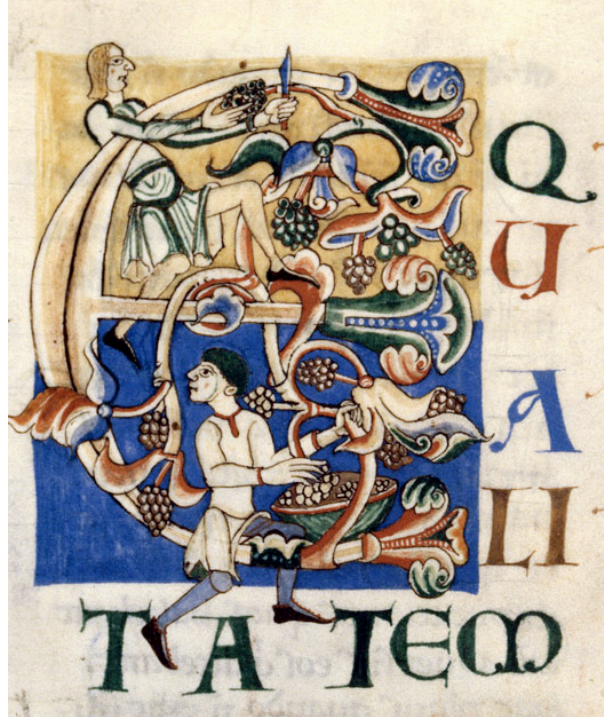 E
Q
U
A
LI
TATEM